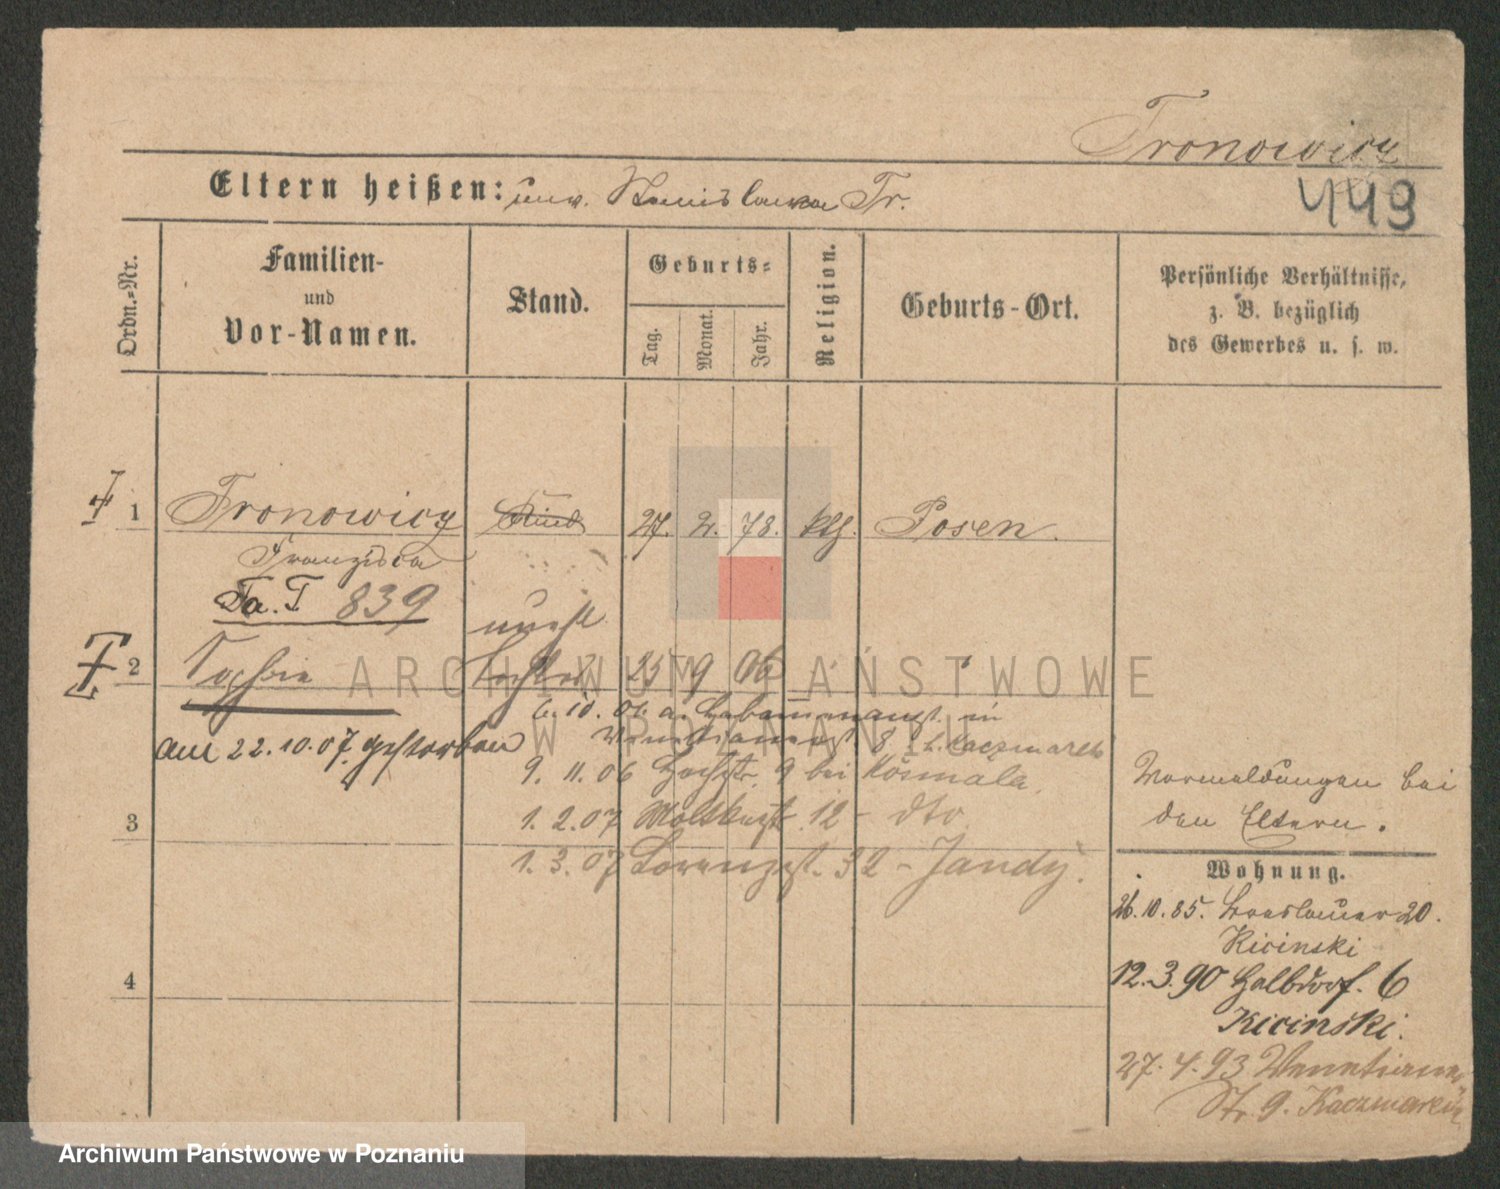 Tronowicz
449
Eltern heißen: unv. Stanislawa Tr.
Ordn.-Nr.
Familien-
und
Vor-Namen.
Stand.
Geburts-
Tag.
Monat.
Jahr.
Religion.
Geburts-Ort.
Persönliche Verhältnisse,
z. B. bezüglich
des Gewerbes u. s. w.
1 Tronowicz Kind 27. 2. 78. kth. Posen.
Franziska
Fa. T 839
unehl.
2 Sophia Tochter 25 9 06
6. 10. 06 a. Hebammenanst. in
am 22.10.07. gestorben
8 b. Kaczmarek
9. 11. 06 9 bei Kosmala.
3
1. 2. 07 Moltkest. 12 - dto
1. 3. 07 Lorenzst. 32 - Jandy.
4
Vormeldungen bei
den Eltern.
Wohnung.
26. 10. 85. Breslauer 20.
Kicinski
12. 3. 90 Halbdorf. 6
Kicinski.
27. 4. 93 Venetianer
Str 9. Kaczmarek
ARCHIWUM PAŃSTWOWE
W POZNANIU
Archiwum Państwowe w Poznaniu